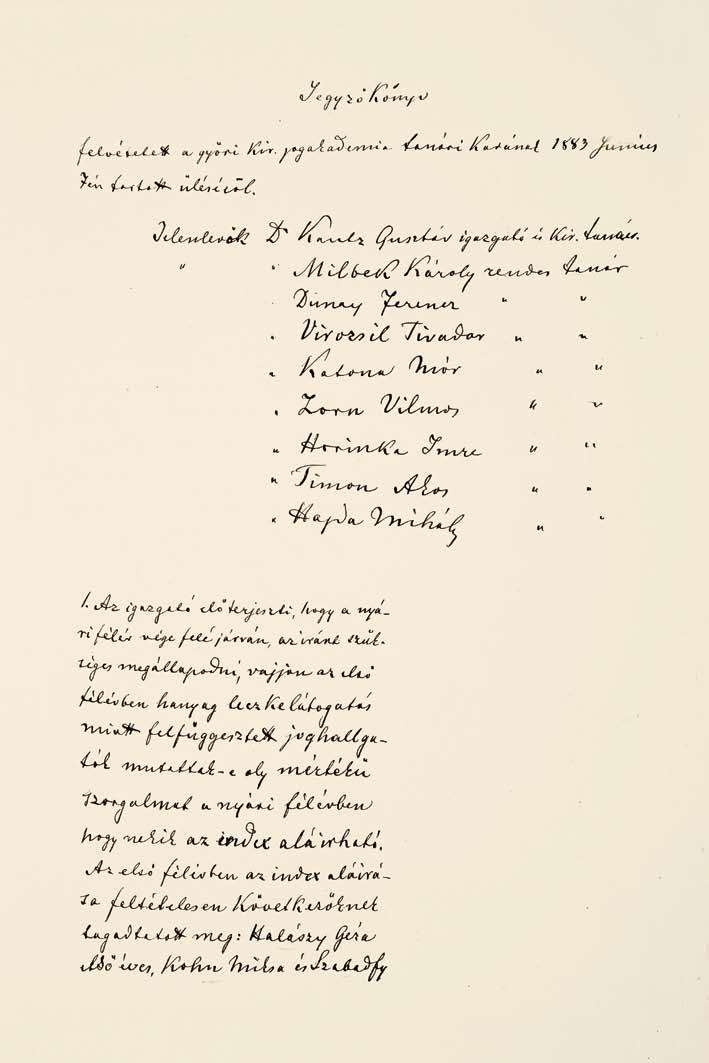 Jegyző Könyv
felvétetett a győri kir. jogakadémia tanári Karának 1883 Junius
7én tartott üléséről.
Jelenlevők Dr Kautz Gusztáv igazgató és kir. tanács.
" " Milbek Károly rendes tanár
Dunay Ferencz " "
" Virozsil Tivadar " "
" Katona Mór " "
" Zorn Vilmos " "
" Horinka Imre " "
" Timon Akos " "
" Hajda Mihály " "
1. Az igazgató előterjeszti, hogy a nyá-
ri félév vége felé járván, az iránt szük-
séges megállapodni, vajjon az első
félévben hanyag leczkelátogatás
miatt felfüggesztett joghallga-
tók mutattak-e oly mértékü
szorgalmat a nyári félévben
hogy nekik az index aláirható.
Az első félévben az index aláirá-
sa feltételesen következőknek
tagadtatott meg: Halászy Géza
első éves, Kohn Miksa és Szabadfy